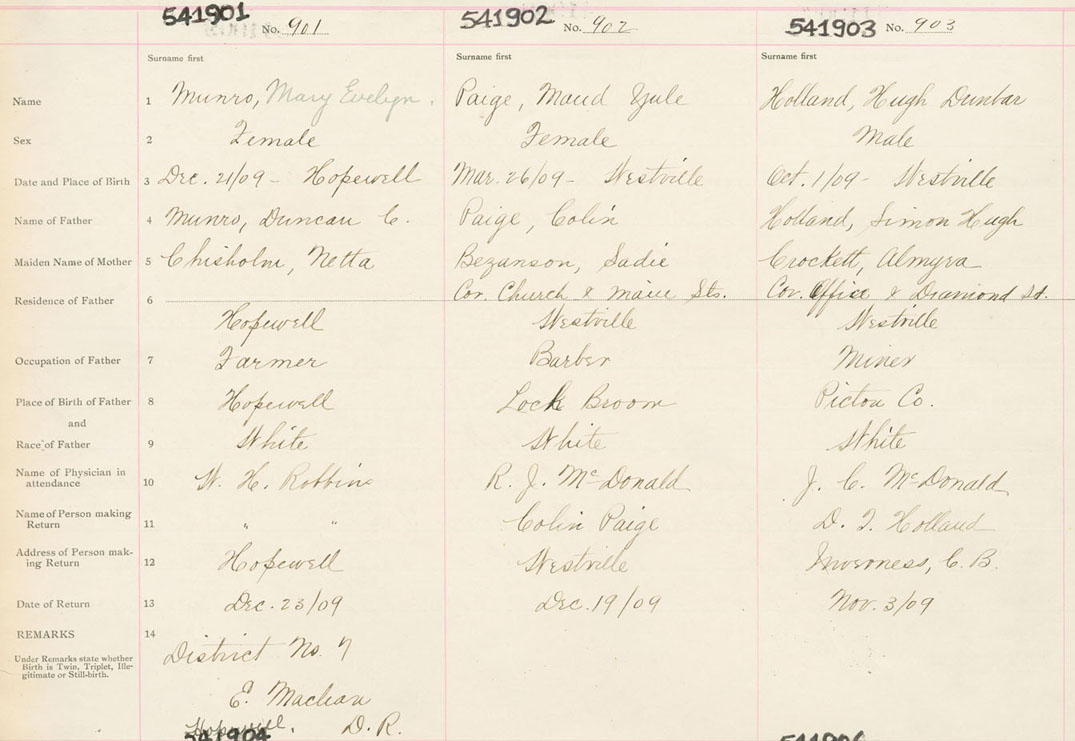 541901 541902 541903
No. 901 No. 902 No. 903
Surname first Surname first Surname first
Name 1 Munro, Mary Evelyn. Paige, Maud Yule Holland, Hugh Dunbar
Sex 2 Female Female Male
Date and Place of Birth 3 Dec. 21/09 - Hopewell Mar. 26/09 - Westville Oct. 1/09 - Westville
Name of Father 4 Munro, Duncan C. Paige, Colin Holland, Simon Hugh
Maiden Name of Mother 5 Chisholm, Netta Bezanson, Sadie Crockett, Almyra
Cor. Church & Main Sts. Cor. Office & Diamond St.
Residence of Father 6
Hopewell Westville Westville
Occupation of Father 7 Farmer Barber Miner
Place of Birth of Father 8 Hopewell Lock Broom Pictou Co.
and
Race of Father 9 White White White
Name of Physician in
attendance 10 W. H. Robbins R. J. McDonald J. C. McDonald
Name of Person making
Return 11 " " Colin Paige D. F. Holland
Address of Person mak-
ing Return 12 Hopewell Westville Inverness, C. B.
Date of Return 13 Dec. 23/09 Dec. 19/09 Nov. 3/09
REMARKS 14
Under Remarks state whether
Birth is Twin, Triplet, Ille-
gitimate or Still-birth.
District No. 7
E. Maclean
Hopewell. D. R.
541904